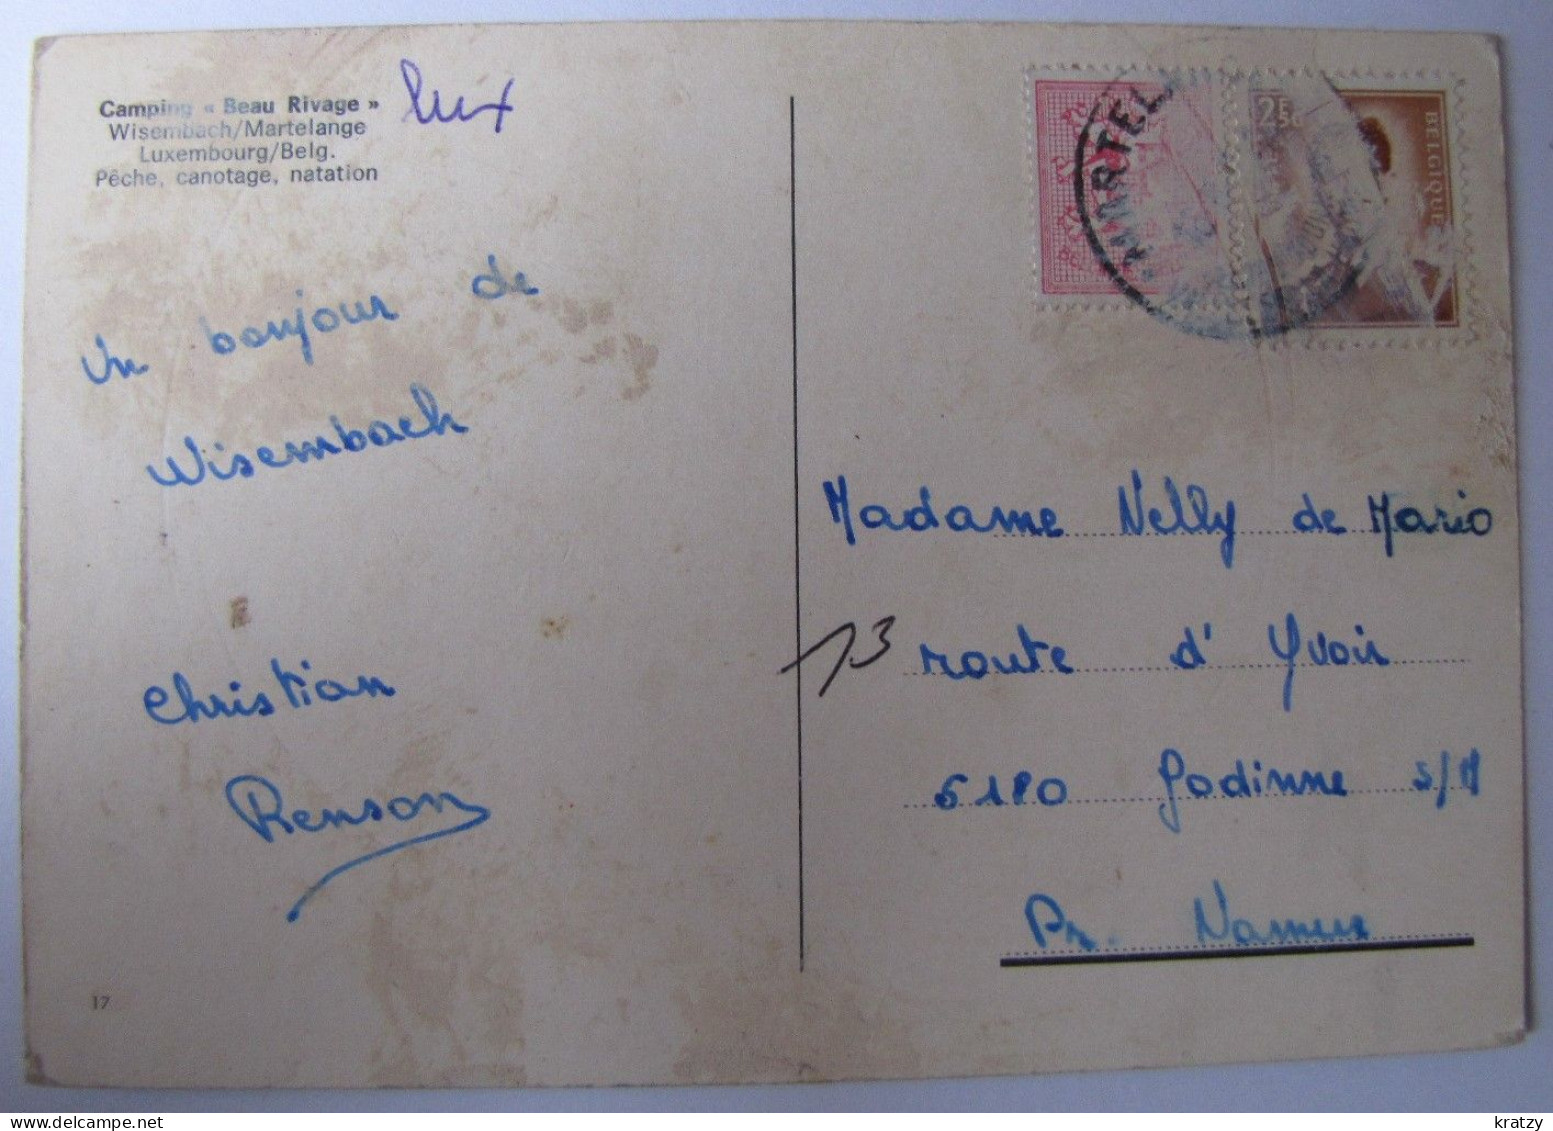 Camping « Beau Rivage »
Wisembach/Martelange
Luxembourg/Belg.
Pêche, canotage, natation
lux
Un bonjour de
Wisembach
Christian
Renson
17
MARTEL
2F50
BELGIQUE
Madame Nelly de Mario
13 route d' Yvoir
5180 Godinne s/M
Pr. Namur
www.delcampe.net
kratzy